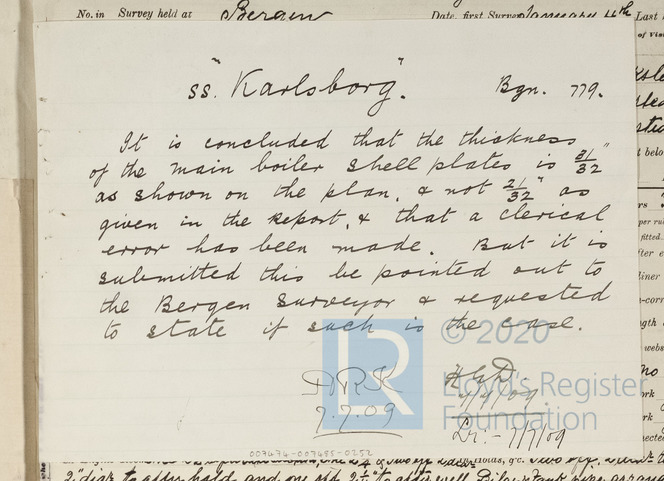 No. in Survey held at Bergen Date, first Survey January 4th Last
of Vis
ss. "Karlsborg". Bgn. 779.
It is concluded that the thickness
of the main boiler shell plates is 31/32"
as shown on the plan, & not 21/32" as
given in the report, & that a clerical
error has been made. But it is
submitted this be pointed out to
the Bergen Surveyor & requested
to state if such is the case.
D.R.K
7.7.09
7/7/09
Lr:- 7/7/09
LR
© 2020
Lloyd's Register
Foundation
007474-007485-0252